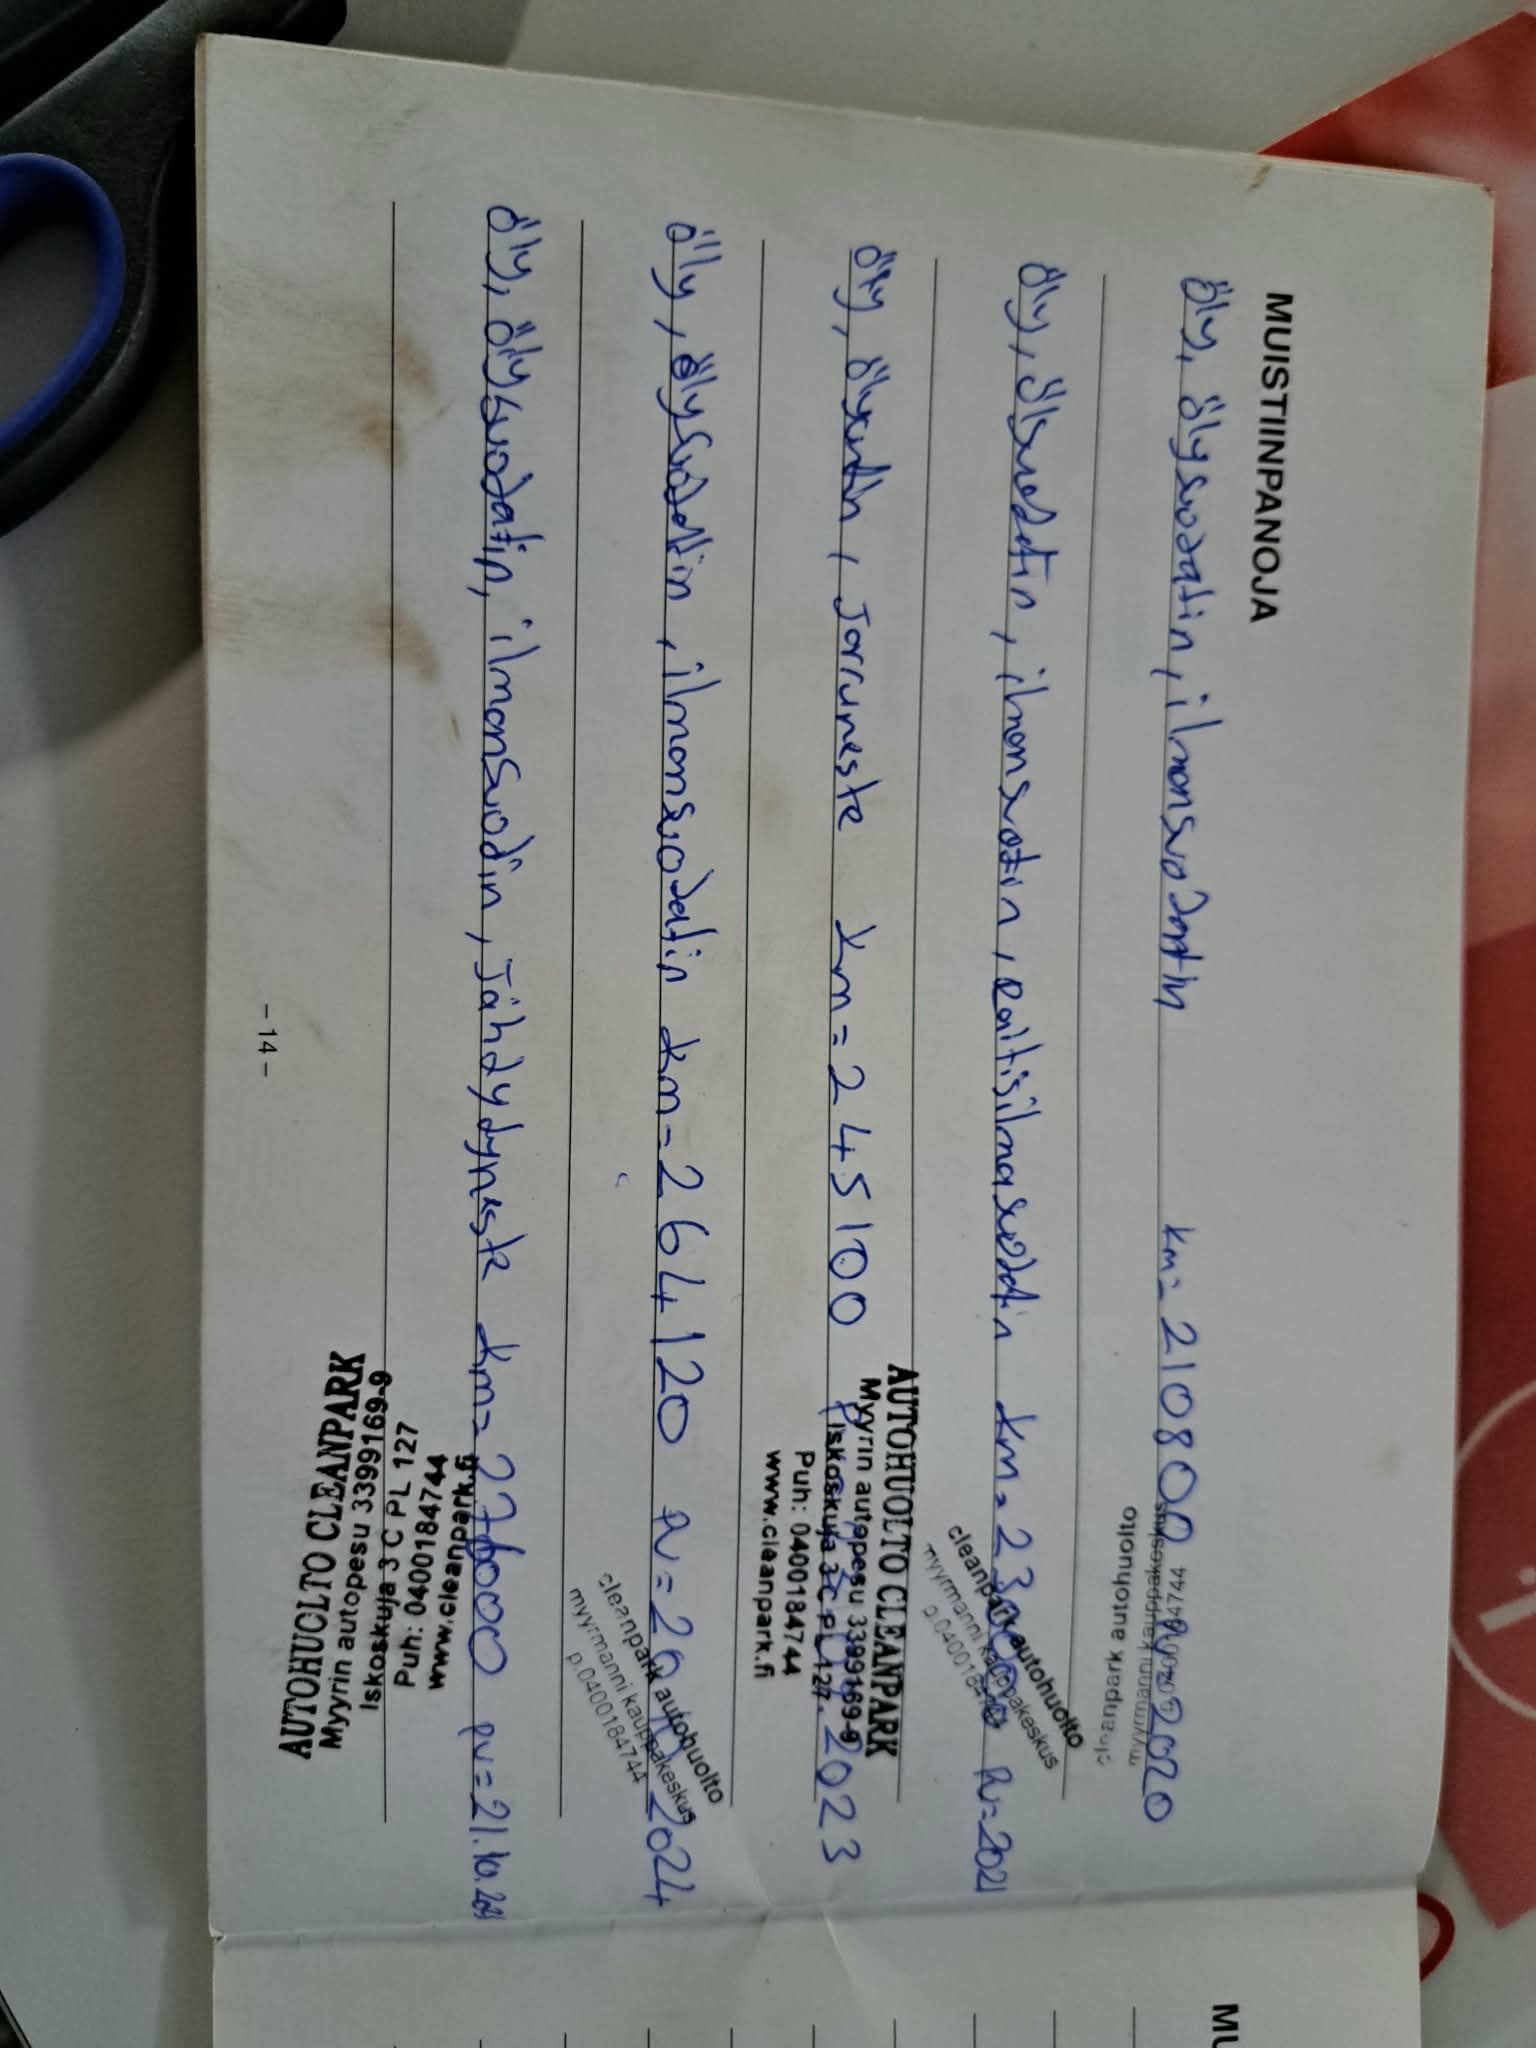 MUISTIINPANOJA
öly, ölysuodatin, ilmansuodatin km=210800 2020
cleanpark autohuolto
myyrmanni kauppakeskus
öly, ölysuodatin, ilmansuotin, raitisilmasuodatin km=230000 pv=2021
cleanpark autohuolto
myyrmanni kauppakeskus
p.0400184744
öly, ölysuotin, Jarruneste km=245100 2023
AUTOHUOLTO CLEANPARK
Myyrin autopesu 3399169-9
Iskoskuja 3 C PL 127
Puh: 0400184744
www.cleanpark.fi
öly, ölysuodatin, ilmansuodatin km=264120 pv= 2024
cleanpark autohuolto
myyrmanni kauppakeskus
p.0400184744
öly, ölysuodatin, ilmansuodin, Jähdydyneste pv=21.10.
AUTOHUOLTO CLEANPARK
Myyrin autopesu 3399169-9
Iskoskuja 3 C PL 127
Puh: 0400184744
www.cleanpark.fi
- 14 -
MU